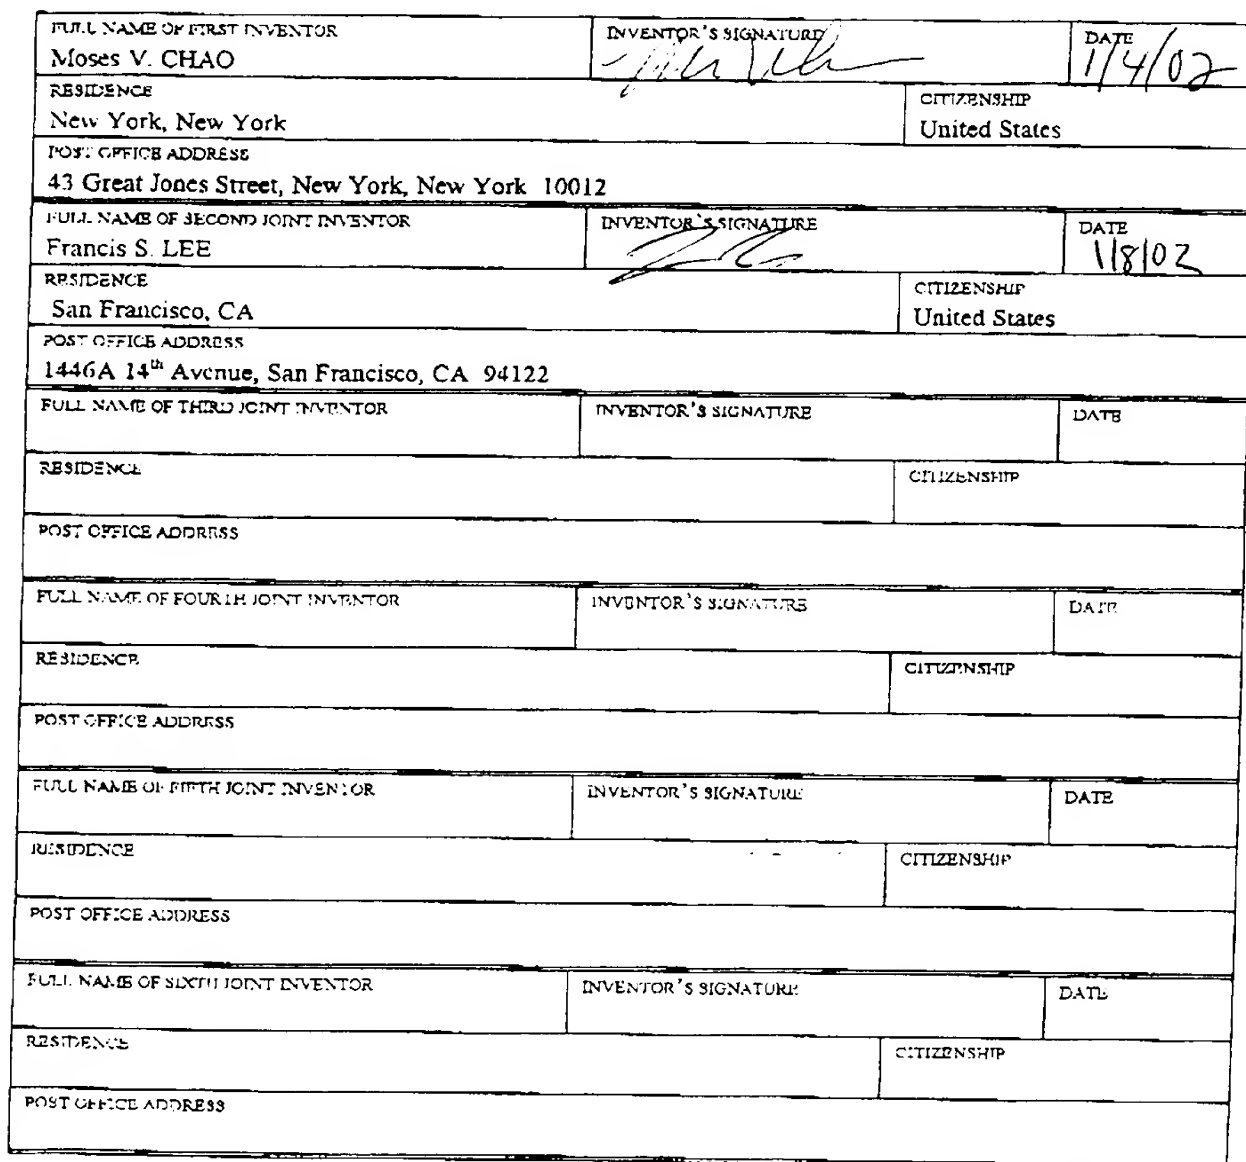 FULL NAME OF FIRST INVENTOR INVENTOR'S SIGNATURE DATE
Moses V. CHAO 1/4/02
RESIDENCE CITIZENSHIP
New York, New York United States
POST OFFICE ADDRESS
43 Great Jones Street, New York, New York 10012
FULL NAME OF SECOND JOINT INVENTOR INVENTOR'S SIGNATURE DATE
Francis S. LEE 1/8/02
RESIDENCE CITIZENSHIP
San Francisco, CA United States
POST OFFICE ADDRESS
1446A 14th Avenue, San Francisco, CA 94122
FULL NAME OF THIRD JOINT INVENTOR INVENTOR'S SIGNATURE DATE
RESIDENCE CITIZENSHIP
POST OFFICE ADDRESS
FULL NAME OF FOURTH JOINT INVENTOR INVENTOR'S SIGNATURE DATE
RESIDENCE CITIZENSHIP
POST OFFICE ADDRESS
FULL NAME OF FIFTH JOINT INVENTOR INVENTOR'S SIGNATURE DATE
RESIDENCE CITIZENSHIP
POST OFFICE ADDRESS
FULL NAME OF SIXTH JOINT INVENTOR INVENTOR'S SIGNATURE DATE
RESIDENCE CITIZENSHIP
POST OFFICE ADDRESS